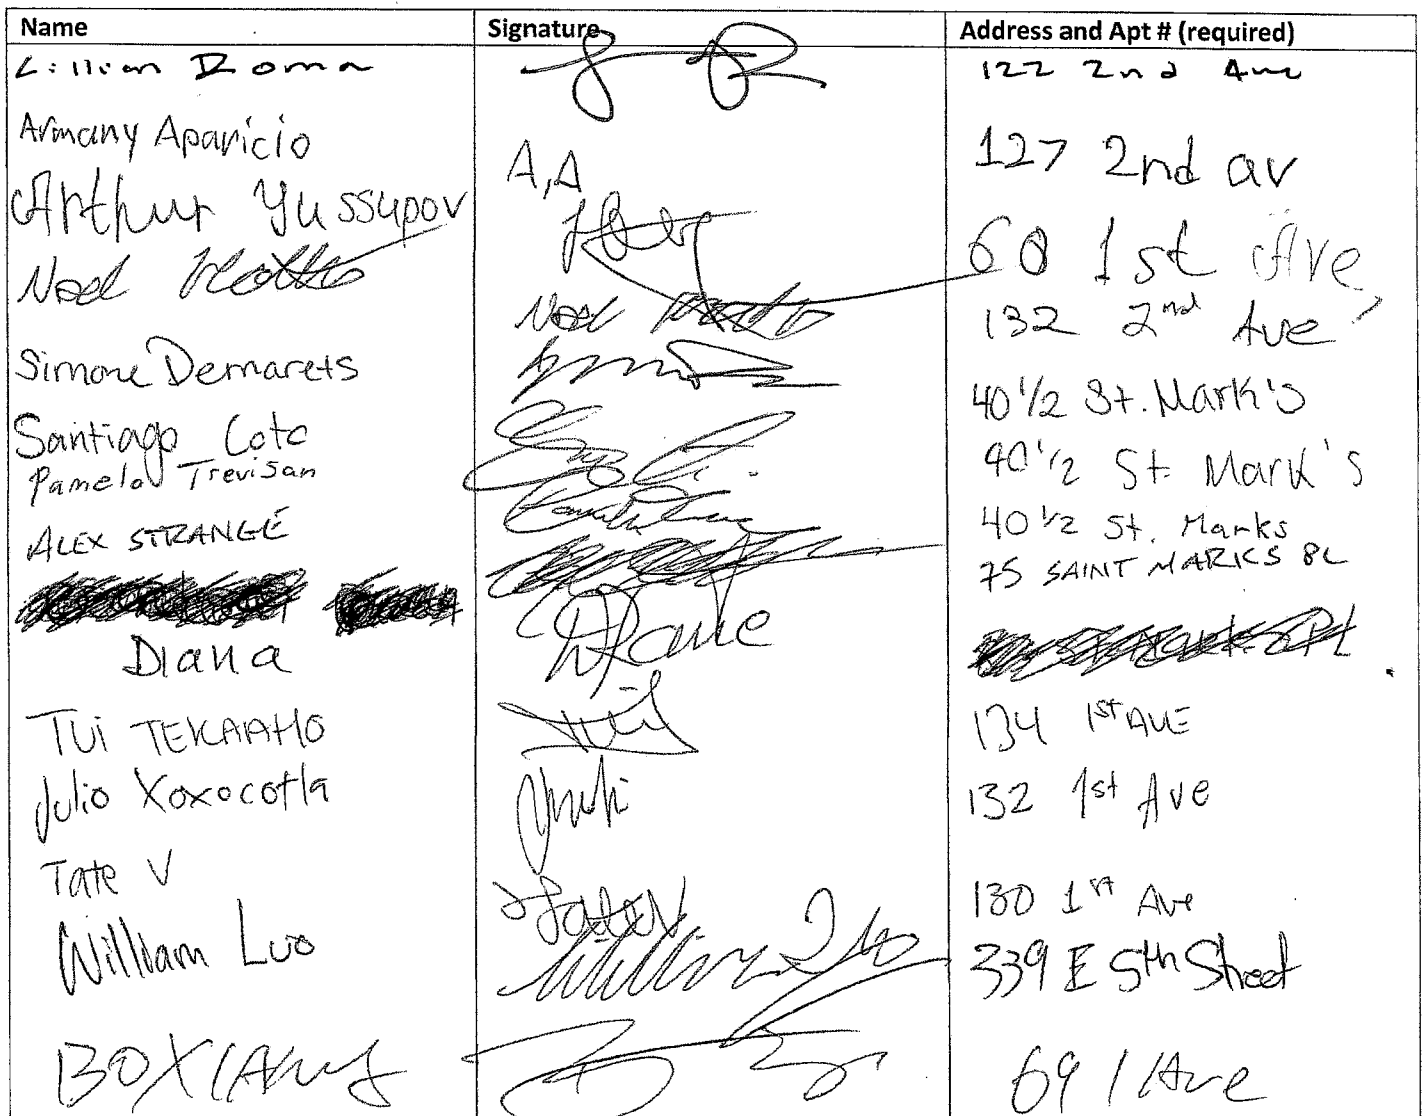 Name Signature Address and Apt # (required)
Lillian Roma 122 2nd Ave
Armany Aparicio A,A 127 2nd av
Arthur Yussupov 60 1st Ave,
Noel Noel 132 2nd Ave
Simone Demarets 40 1/2 St. Mark's
Santiago Coto 40 1/2 St. Mark's
Pamela Trevisan 40 1/2 St. Marks
ALEX STRANGE 75 SAINT MARKS PL
Diana
TUi TEKAAHO 134 1st AVE
Julio Xoxocotla 132 1st Ave
Tate V Tate V 130 1st Ave
William Luo William Luo 339 E 5th Street
BOXIANG 69 1 Ave